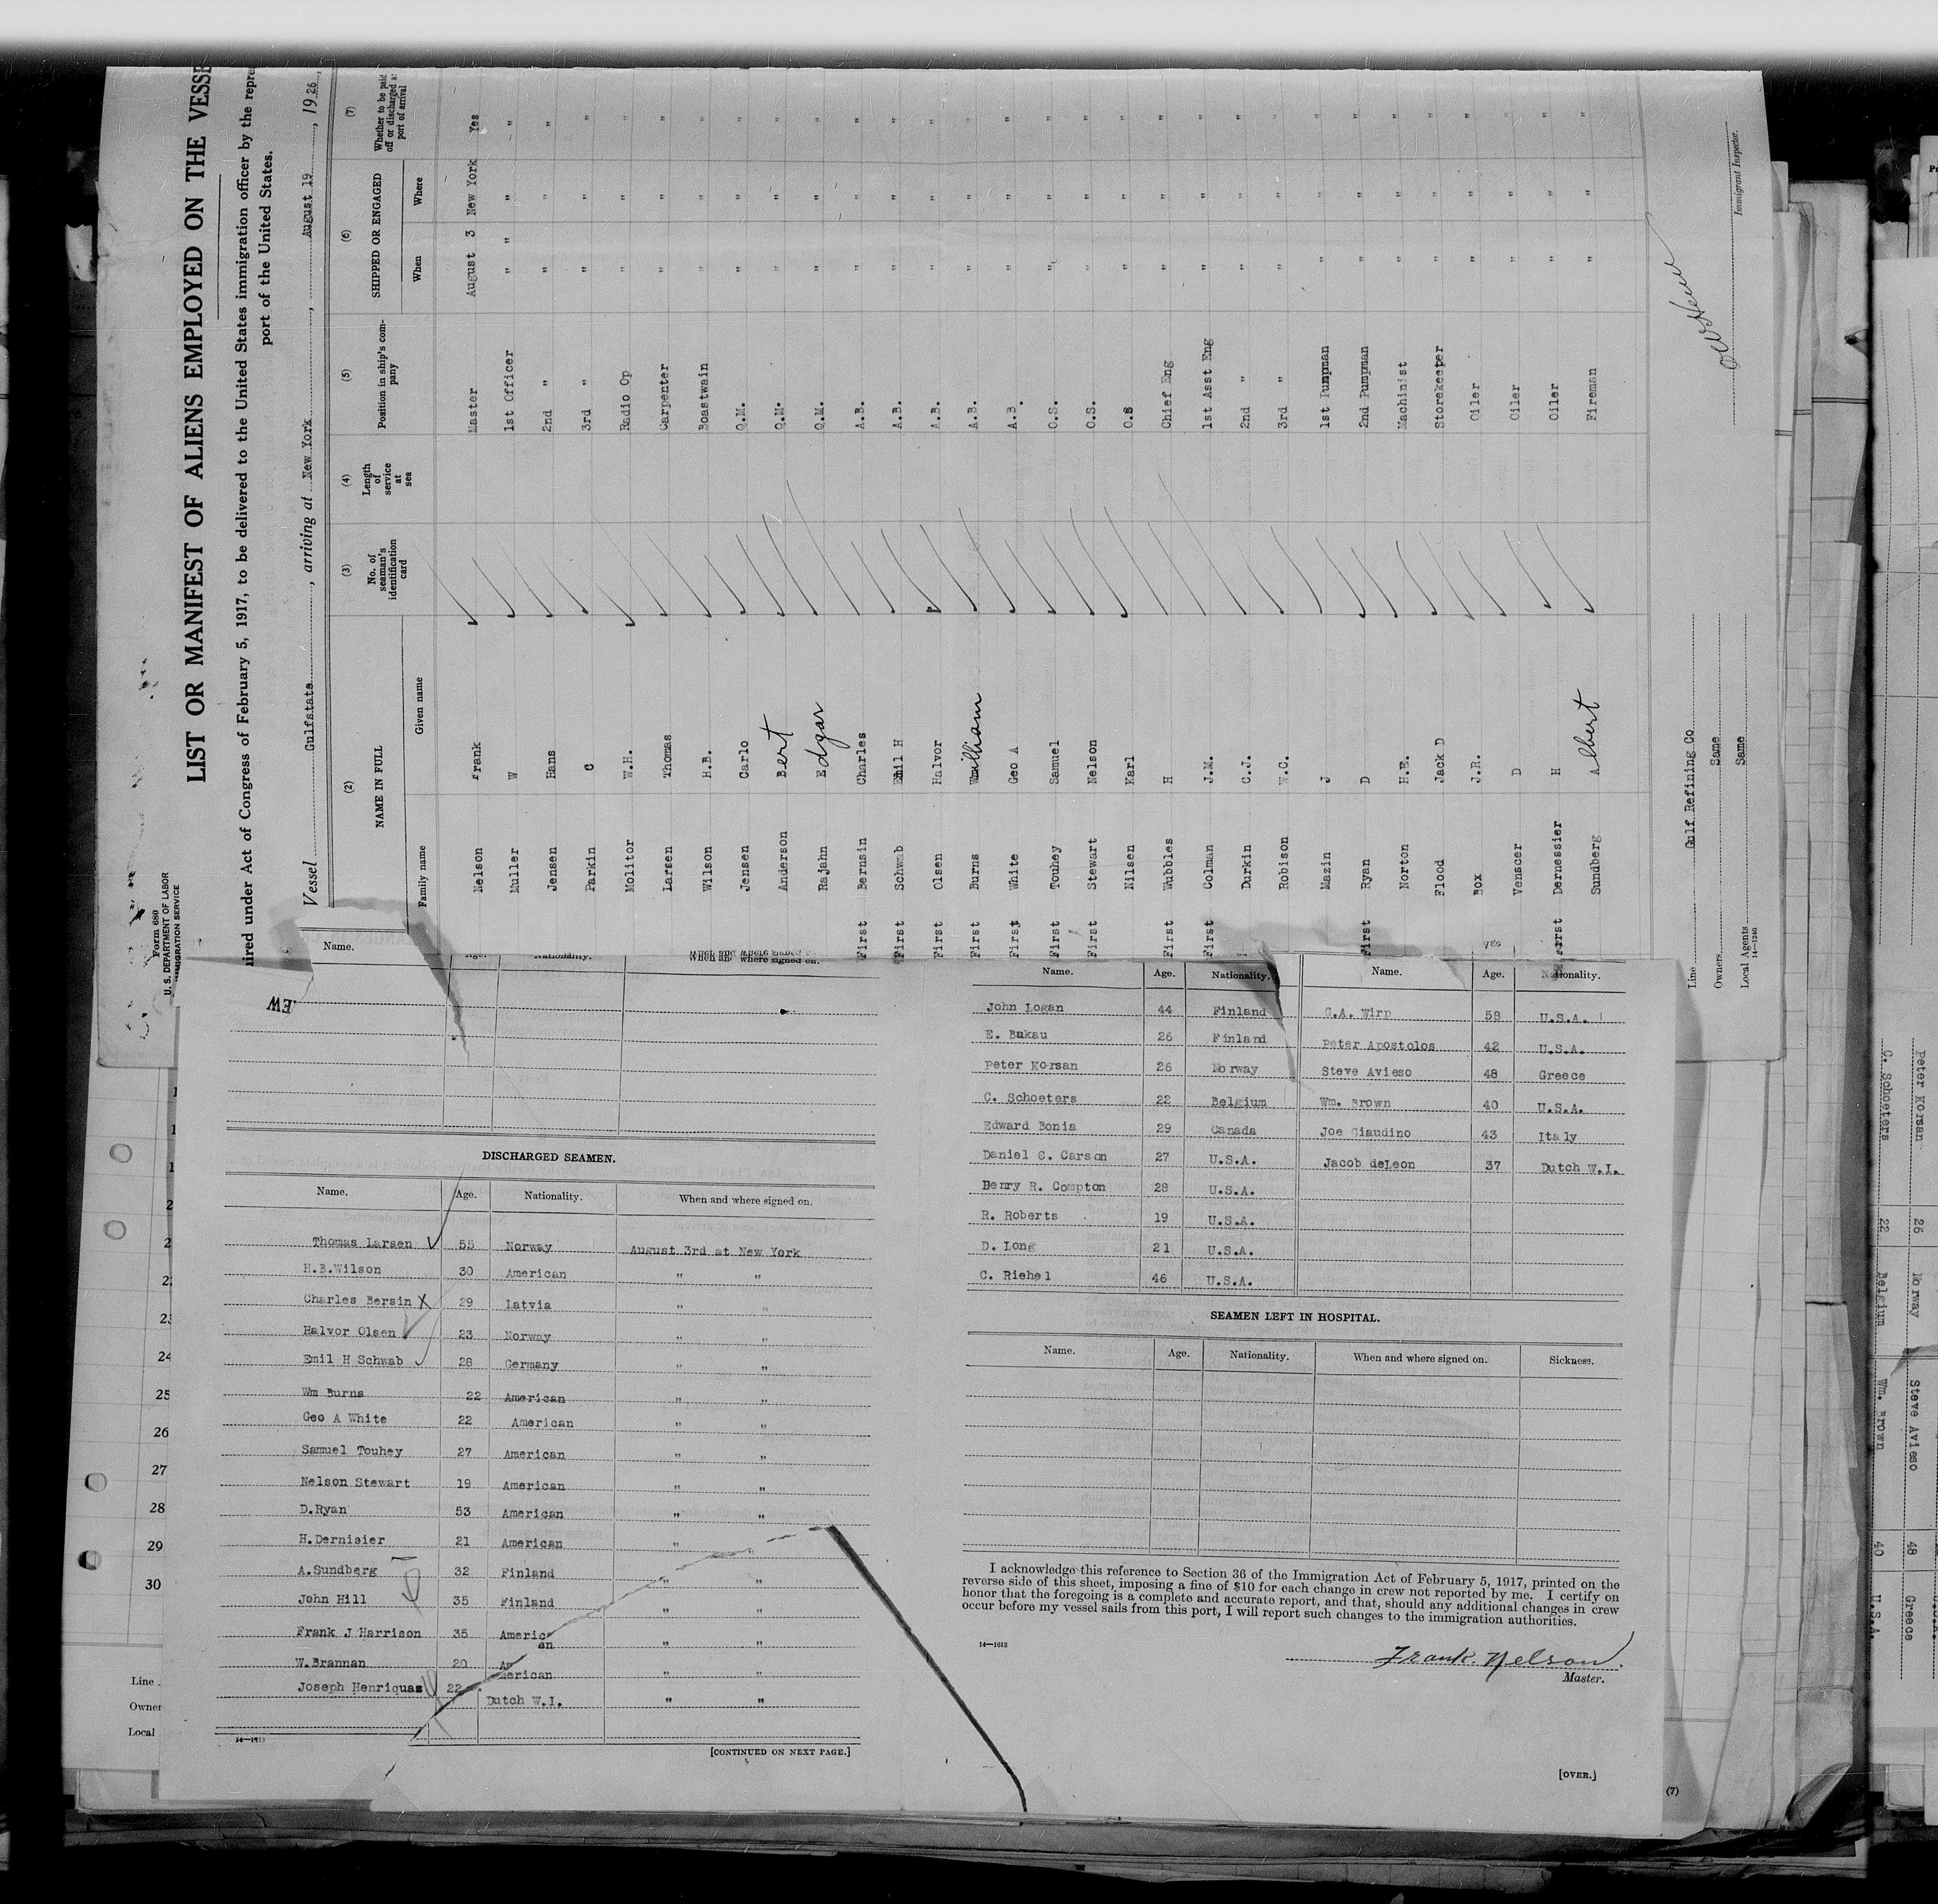 Form 680
U. S. DEPARTMENT OF LABOR
IMMIGRATION SERVICE
LIST OR MANIFEST OF ALIENS EMPLOYED ON THE VESSE
ired under Act of Congress of February 5, 1917, to be delivered to the United States immigration officer by the repre
port of the United States.
Vessel Gulfstate, arriving at New York, August 19, 1926,
(2) (3) (4) (5) (6) (7)
NAME IN FULL
Family name Given name
No. of seaman's identification card
Length of service at sea
Position in ship's company
SHIPPED OR ENGAGED
When Where
Whether to be paid off or discharged at port of arrival
Nelson Frank Master August 3 New York Yes
Muller W 1st Officer " " " "
Jensen Hans 2nd " " " "
Parkin C 3rd " " " "
Molitor W.H. Radio Op " " "
Larsen Thomas Carpenter " " "
Wilson H.B. Boastwain " " "
Jensen Carlo Q.M. " " "
Anderson Bert Q.M. " " "
Rajahn Edgar Q.M. " " "
First Bernsin Charles A.B. " " "
First Schwab Emil H A.B. " " "
First Olsen Halvor A.B. " " "
First Burns William A.B. " " "
First White Geo A A.B. " " "
First Touhey Samuel O.S. " " "
First Stewart Nelson O.S. " " "
Nilsen Karl O.S " " "
First Wubbles H Chief Eng " " "
First Colman J.M. 1st Asst Eng " " "
Durkin C.J. 2nd " " " "
Robison W.C. 3rd " " " "
Mazin J 1st Pumpman " " "
First Ryan D 2nd Pumpman " " "
Norton H.E. Machinist " " "
Flood Jack D Storekeeper " " "
Box J.R. Oiler " " "
Venscer D Oiler " " "
First Dernessier H Oiler " " "
Sundberg Albert Fireman " " "
Line Gulf Refining Co
Owners Same
Local Agents Same
14—1240
Immigrant Inspector.
Name.
Age. Nationality. When and where signed on.
EW
DISCHARGED SEAMEN.
Name. Age. Nationality. When and where signed on.
Thomas Larsen 55 Norway August 3rd at New York
H.B.Wilson 30 American " "
Charles Bersin X 29 Latvia " "
Halvor Olsen 23 Norway " "
Emil H Schwab 28 Germany " "
Wm Burns 22 American " "
Geo A White 22 American " "
Samuel Touhey 27 American " "
Nelson Stewart 19 American " "
D.Ryan 53 American " "
H.Dernisier 21 American " "
A.Sundberg 32 Finland " "
John Hill 35 Finland " "
Frank J Harrison 35 American " "
W.Brannan 20 American " "
Joseph Henriquas 22 Dutch W.I. " "
[CONTINUED ON NEXT PAGE.]
Name. Age. Nationality. Name. Age. Nationality.
John Logan 44 Finland C.A. Wirp 58 U.S.A.
E. Bukau 26 Finland Peter Apostolos 42 U.S.A.
Peter Korsan 26 Norway Steve Avieso 48 Greece
C. Schoeters 22 Belgium Wm. Brown 40 U.S.A.
Edward Bonia 29 Canada Joe Giaudino 43 Italy
Daniel C. Carson 27 U.S.A. Jacob deLeon 37 Dutch W.I.
Henry R. Compton 28 U.S.A.
R. Roberts 19 U.S.A.
D. Long 21 U.S.A.
C. Riehel 46 U.S.A.
SEAMEN LEFT IN HOSPITAL.
Name. Age. Nationality. When and where signed on. Sickness.
I acknowledge this reference to Section 36 of the Immigration Act of February 5, 1917, printed on the
reverse side of this sheet, imposing a fine of $10 for each change in crew not reported by me. I certify on
honor that the foregoing is a complete and accurate report, and that, should any additional changes in crew
occur before my vessel sails from this port, I will report such changes to the immigration authorities.
14—1613
Frank. Nelson.
Master.
[OVER.]
(7)
23
24
25
26
27
28
29
30
Line
Owner
Local
Peter Korsan 26 Norway Steve Avieso 48 Greece
C. Schoeters 22 Belgium Wm. Brown 40 U.S.A.